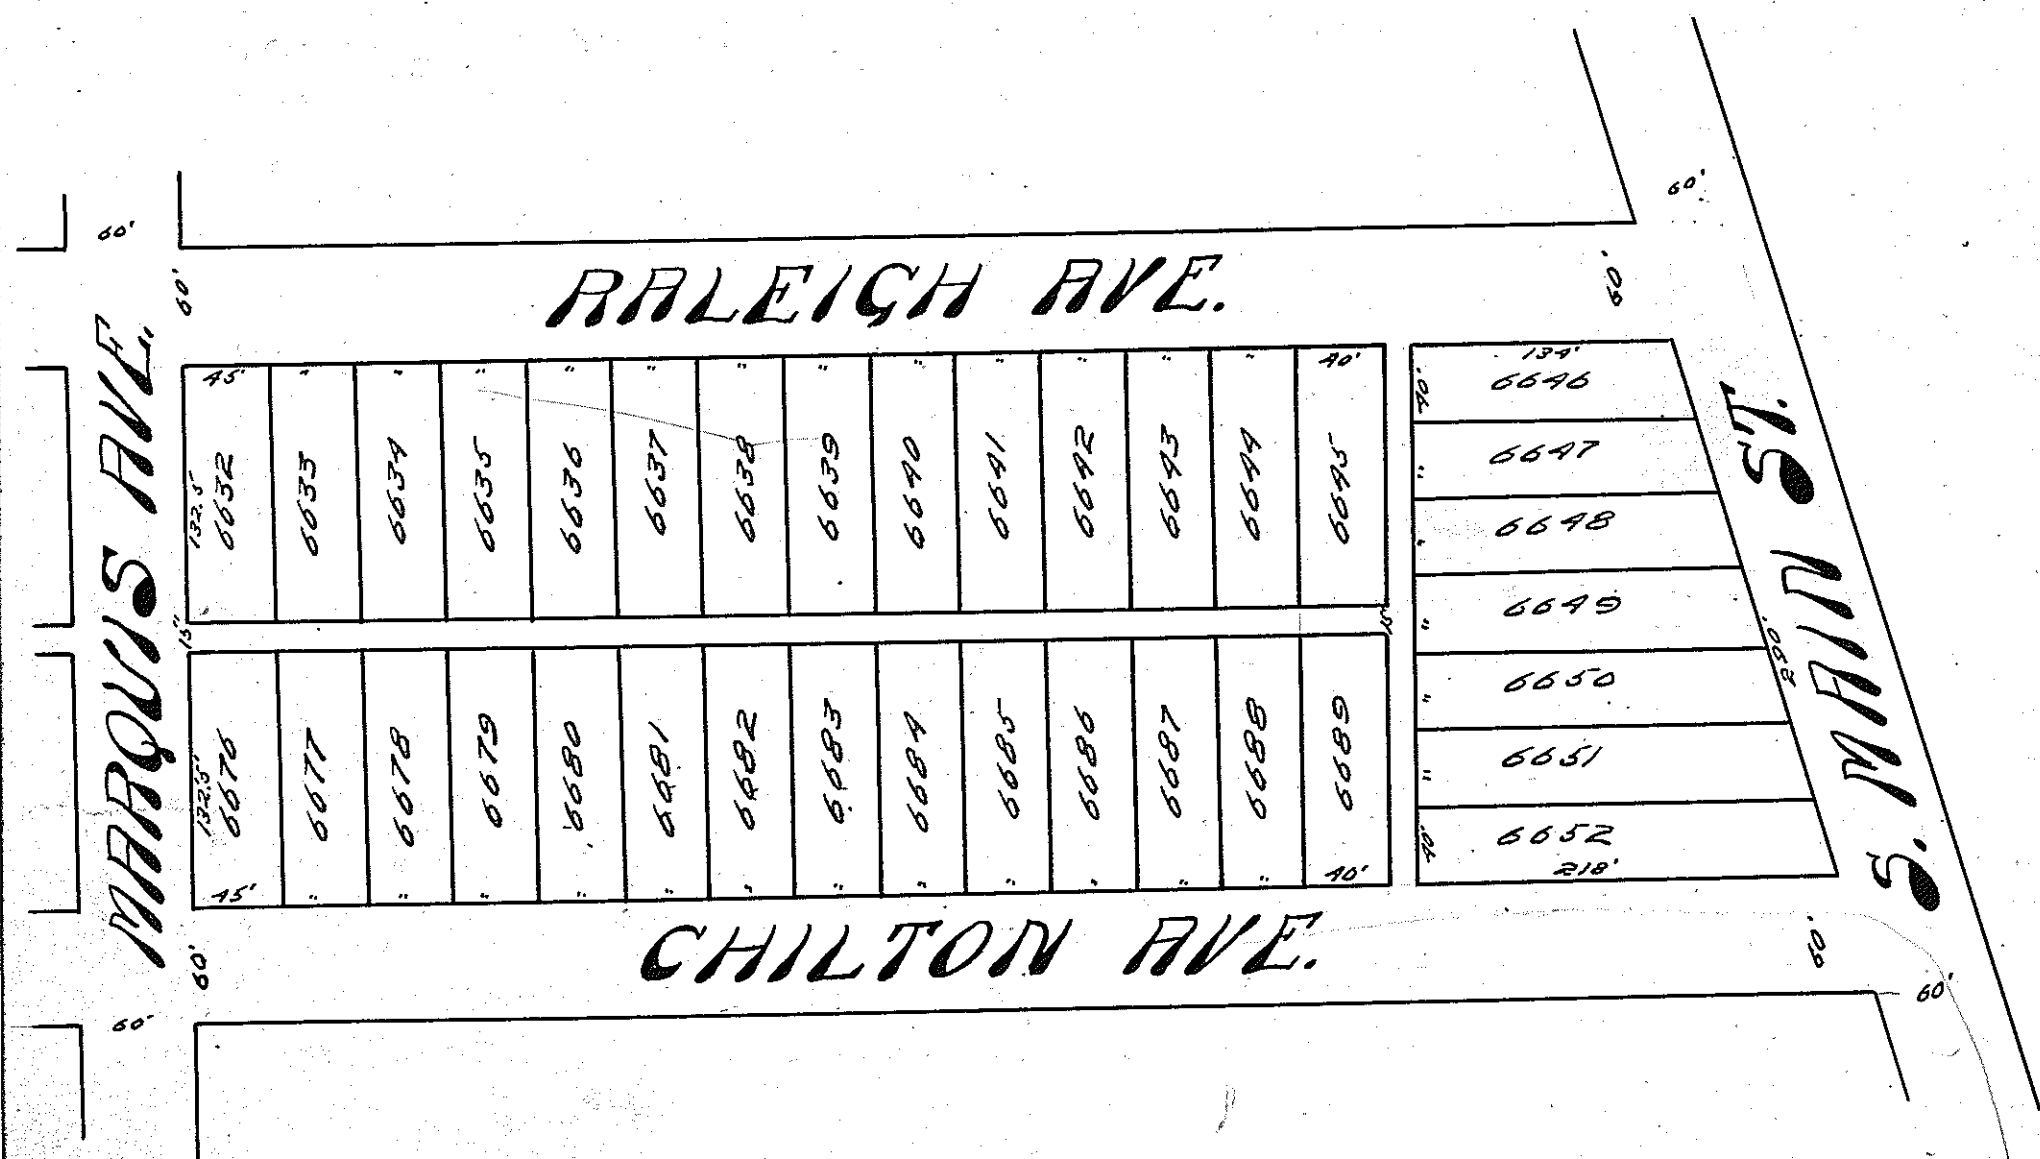 60'
60'
60'
RALEIGH AVE.
60'
MARQUIS AVE.
S. MAIN ST.
45' " " " " " " " " " " " " 40'
132.5
6632 6633 6634 6635 6636 6637 6638 6639 6640 6641 6642 6643 6644 6645
15'
15'
132.5'
6676 6677 6678 6679 6680 6681 6682 6683 6684 6685 6686 6687 6688 6689
45' " " " " " " " " " " " " 40'
134'
40' 6646
" 6647
" 6648
" 6649
" 6650
" 6651
40' 6652
218'
290'
60'
CHILTON AVE.
60'
60'
60'